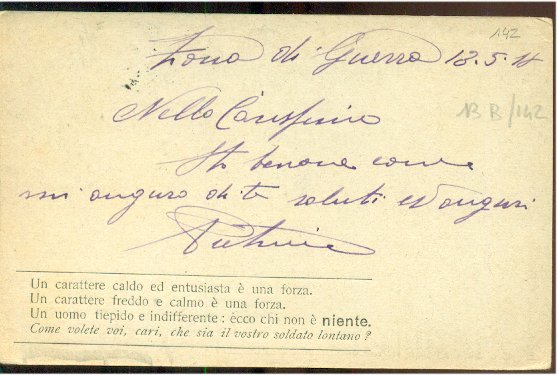 142
Zona di Guerra 13.5.
13 B/142
Nello Carissimo
Sto benone come
mi auguro di te saluti ed auguri
Un carattere caldo ed entusiasta è una forza.
Un carattere freddo e calmo è una forza.
Un uomo tiepido e indifferente: ecco chi non è niente.
Come volete voi, cari, che sia il vostro soldato lontano?